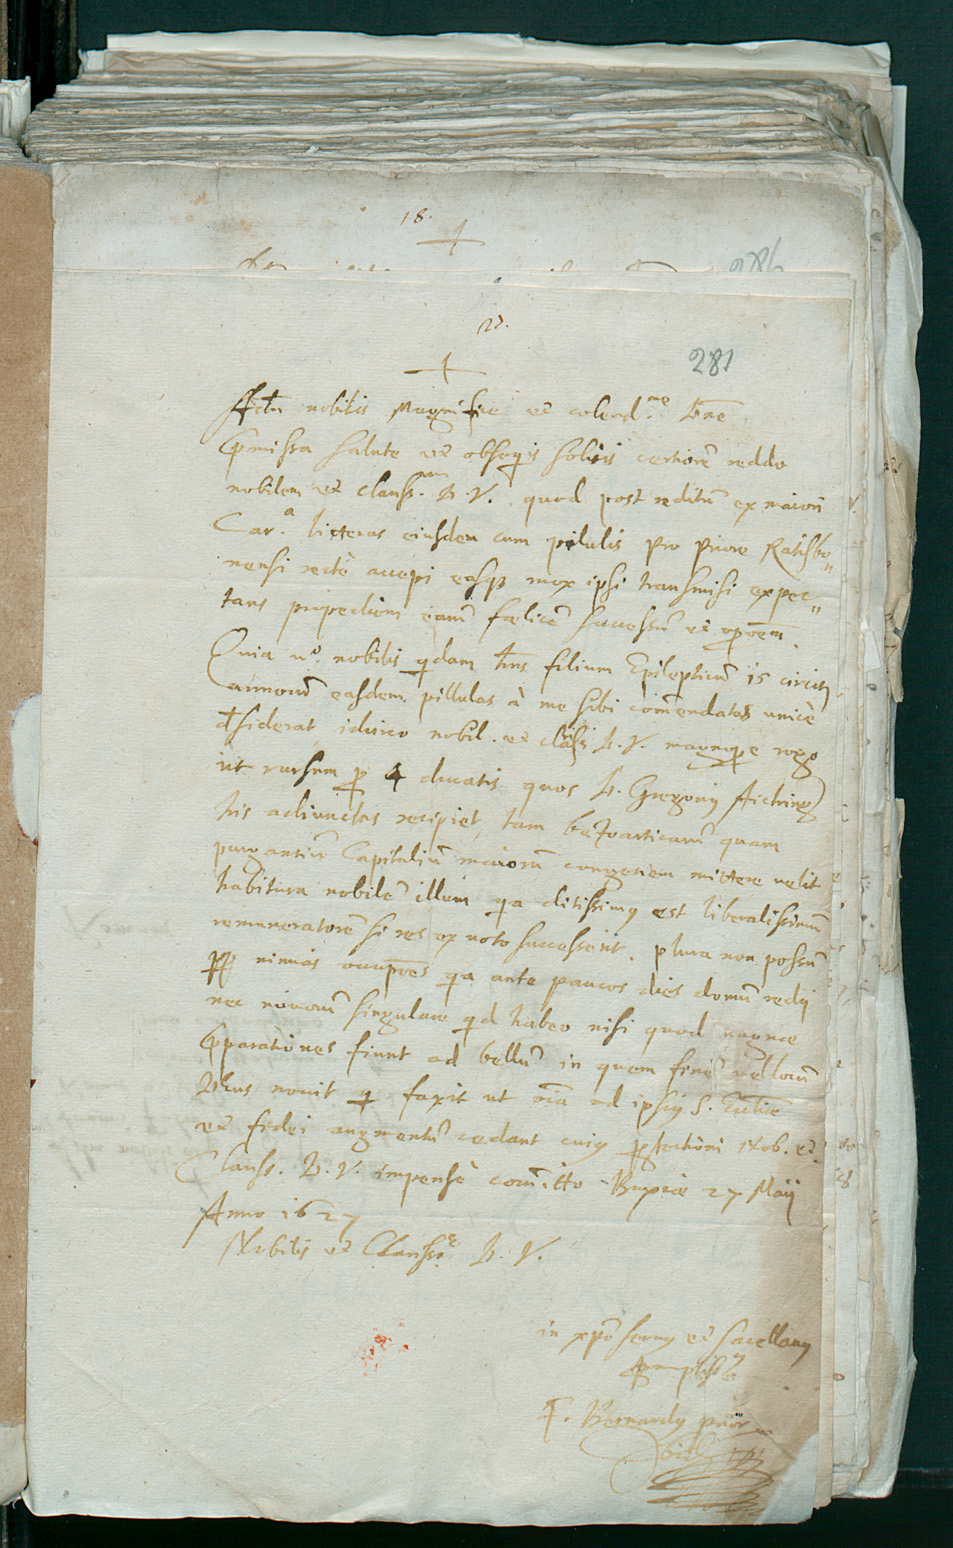 18.
286
22.
281
nobilis Magnifice et colend.me D̄ne
Praemissa salute et obsequiis certiorē reddo
nobilem et clariss.mam D. V. quod post reditū ex maiori
Car.a litteras eiusdem cum pilulis pro Priore Ratisbo„
nensi rectè accepi easq3 mox ipsi transmisi expec„
tans propediem earū foelicē successū et
Quia v.o nobilis qdam Dn̄s filium Epilepticū 15 circiter
annorū easdem pillulas à me sibi com̄endatas unicè
desiderat idcirco nobil. et D. V. magnopere rogo
ut rursum p 4 ducatis quos D. Gregorius
his adiunctos recipiet, tam bezoarticarū quam
purgantiū Capitaliū maiorū congeriem mittere velit
habitura nobilē illum qa ditissimus est liberalissimū
remuneratorē si res ex voto successerit. plura non possū
nimias occupōes qa ante paucos dies domū redij
nec novorū singulare qd habeo nisi quod magnae
Praeparationes fiunt ad bellū in quem finē
Deus novit q faxit ut ad ipsius S.
et fidei augmentū cedant cuius protectioni Nob. et
Clariss. D. V. impensè com̄itto 27 Maij
Anno 1627
Nobilis et Clariss.e D. V.
in xp̄o servus et sacellanus
F. Bernardus prior